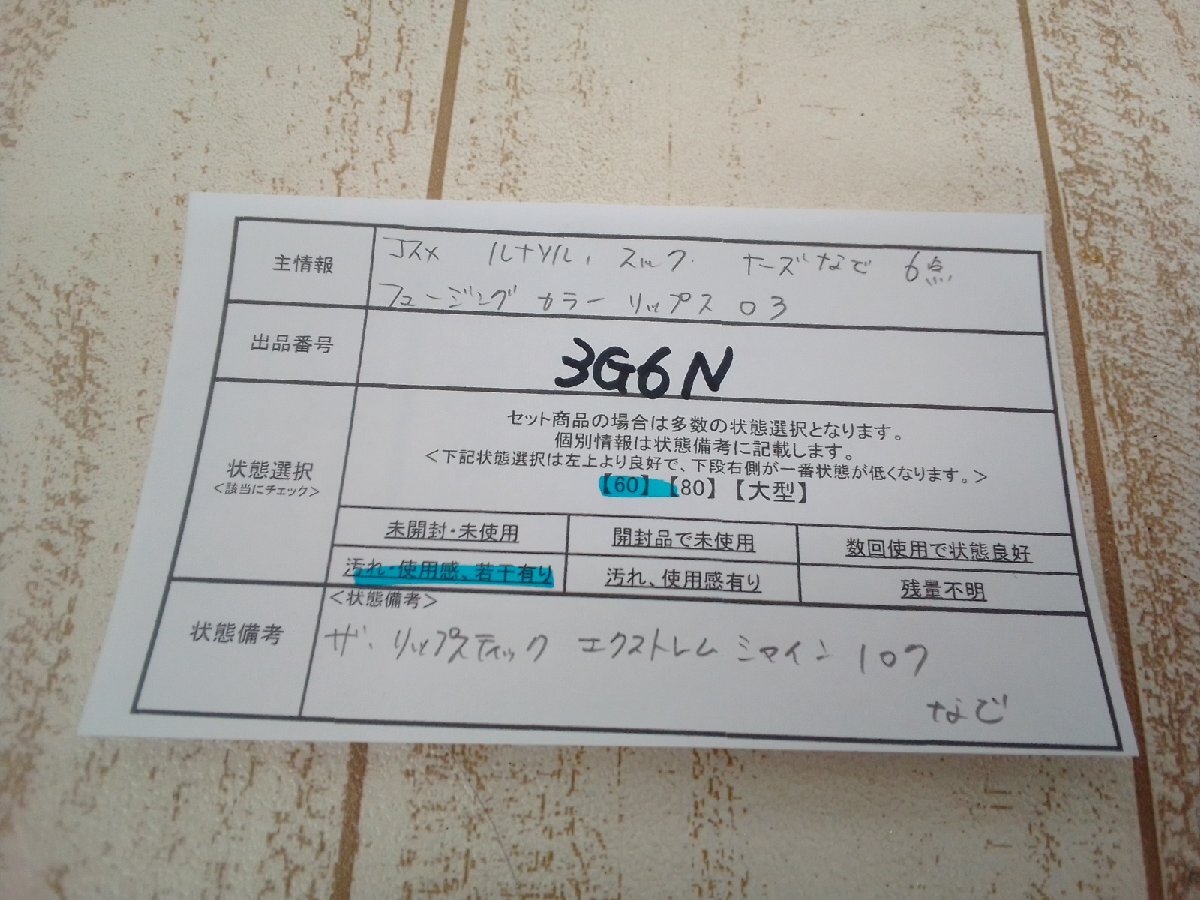 主情報
コスメ ルナソル、スック ナーズなど 6点
フュージング カラー リップス 03
出品番号
3G6N
状態選択
<該当にチェック>
セット商品の場合は多数の状態選択となります。
個別情報は状態備考に記載します。
<下記状態選択は左上より良好で、下段右側が一番状態が低くなります。>
【60】【80】【大型】
未開封・未使用 開封品で未使用 数回使用で状態良好
汚れ・使用感、若干有り 汚れ、使用感有り 残量不明
状態備考
<状態備考>
ザ・リップスティック エクストレム シャイン 107
など